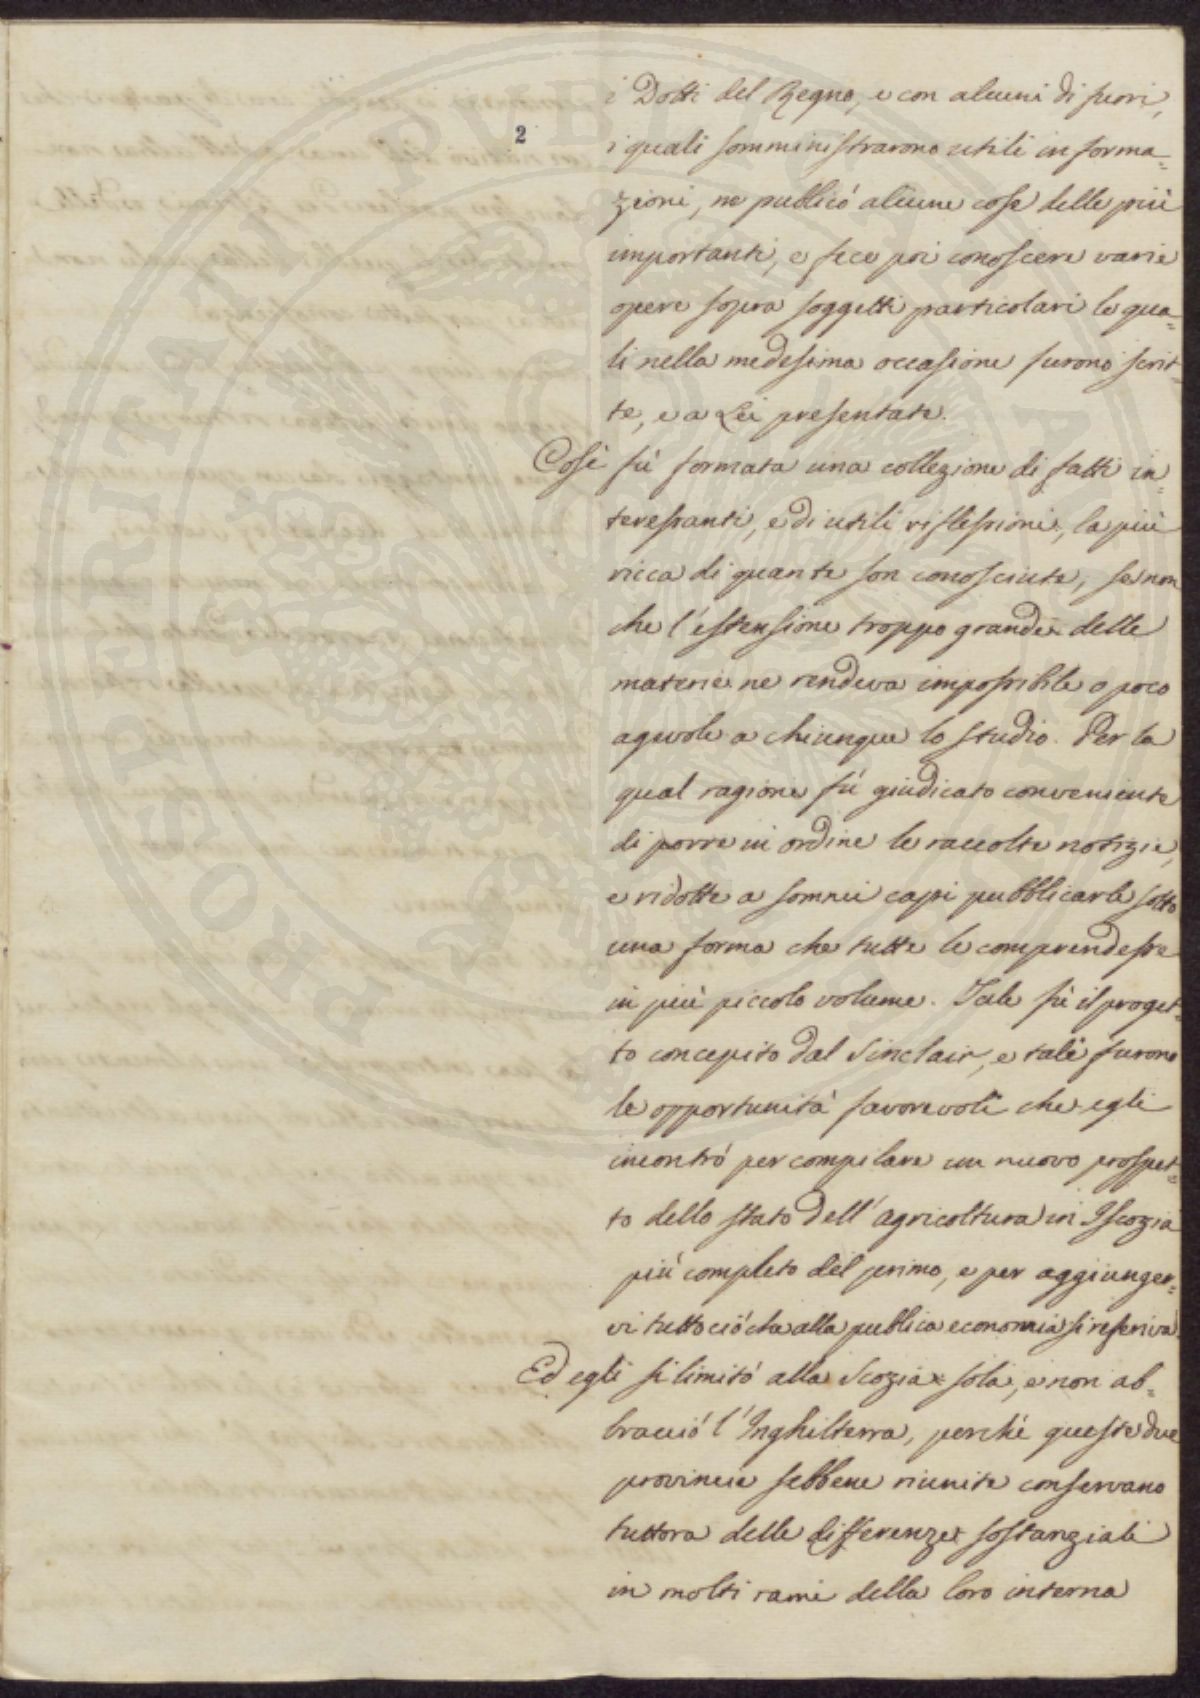 i Dotti del Regno, e con alcuni di fuori,
2
i quali somministrarono utili informa=
zioni, ne publicò alcune cose delle più
importanti, e fece poi conoscere varie
opere sopra soggetti particolari le qua=
li nella medesima occasione furono scrit=
te, e a Lei presentate.
Così fù formata una collezione di fatti in=
teressanti, e di utili riflessioni, la più
ricca di quante son conosciute, se non
che l'estensione troppo grande delle
materie ne rendeva impossibile o poco
agevole a chiunque lo studio. Per la
qual ragione fù giudicato conveniente
di porre in ordine le raccolte notizie,
e ridotte a sommi capi pubblicarle sotto
una forma che tutte le comprendesse
in più piccolo volume. Tale fù il proget=
to concepito dal Sinclair, e tali furono
le opportunità favorevoli che egli
incontrò per compilare un nuovo prospet=
to dello stato dell'agricoltura in Iscozia
più completo del primo, e per aggiunger=
vi tutto ciò che alla publica economia si referiva.
Ed egli si limitò alla Scozia sola, e non ab=
bracciò l'Inghilterra, perchè queste due
provincie sebbene riunite conservano
tuttora delle differenze sostanziali
in molti rami della loro interna
PROSPERITATI PUBLICAE